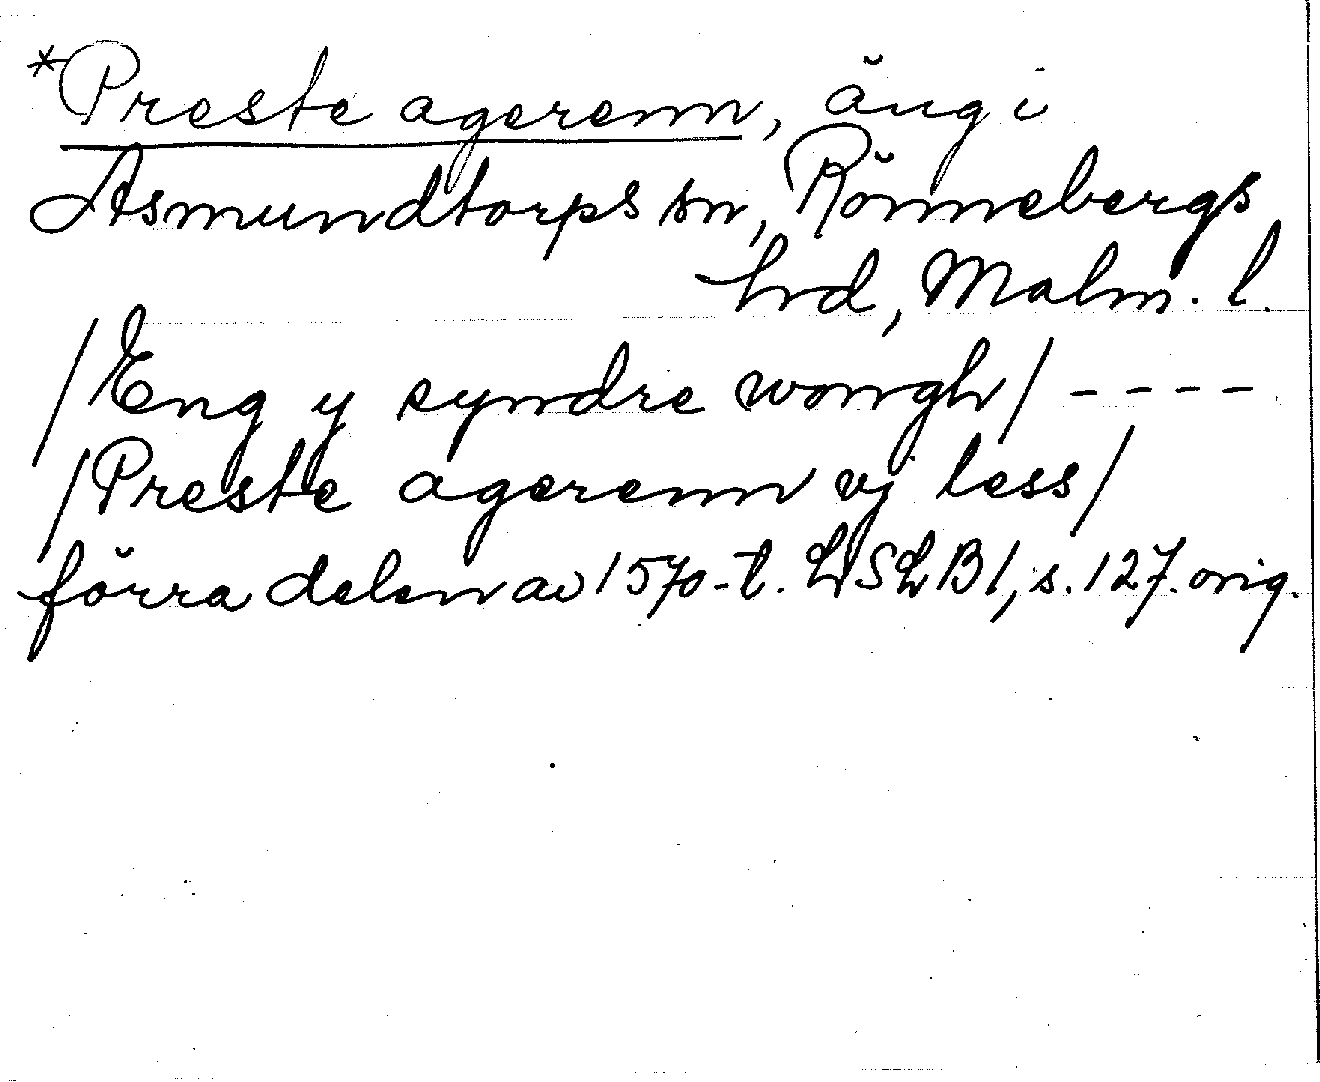 *Preste agerenn, äng i
Asmundtorps sn, Rönnebergs
hrd, Malm. l.
/Eng y syndre wongh/ ----
/Preste agerenn vj less/
förra delen av 1570-t. LSLB1, s. 127. orig.